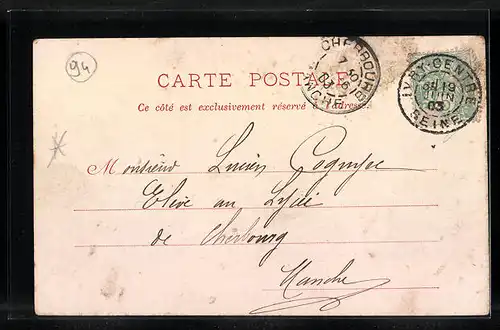 94
CARTE POSTALE
Ce côté est exclusivement réservé à l'adresse
CHERBOURG
MANCHE
IVRY-CENTRE
19
JUIN
03
SEINE
Monsieur Lucien
Elève au Lycée
de Cherbourg
Manche